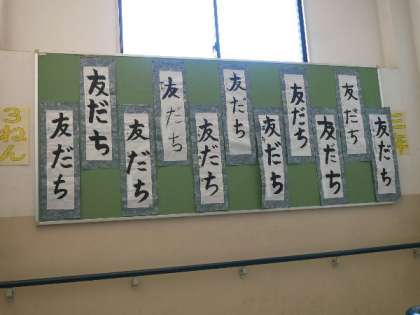 3ねん
友だち
友だち
友だち
友だち
友だち
友だち
友だち
友だち
友だち
友だち
友だち